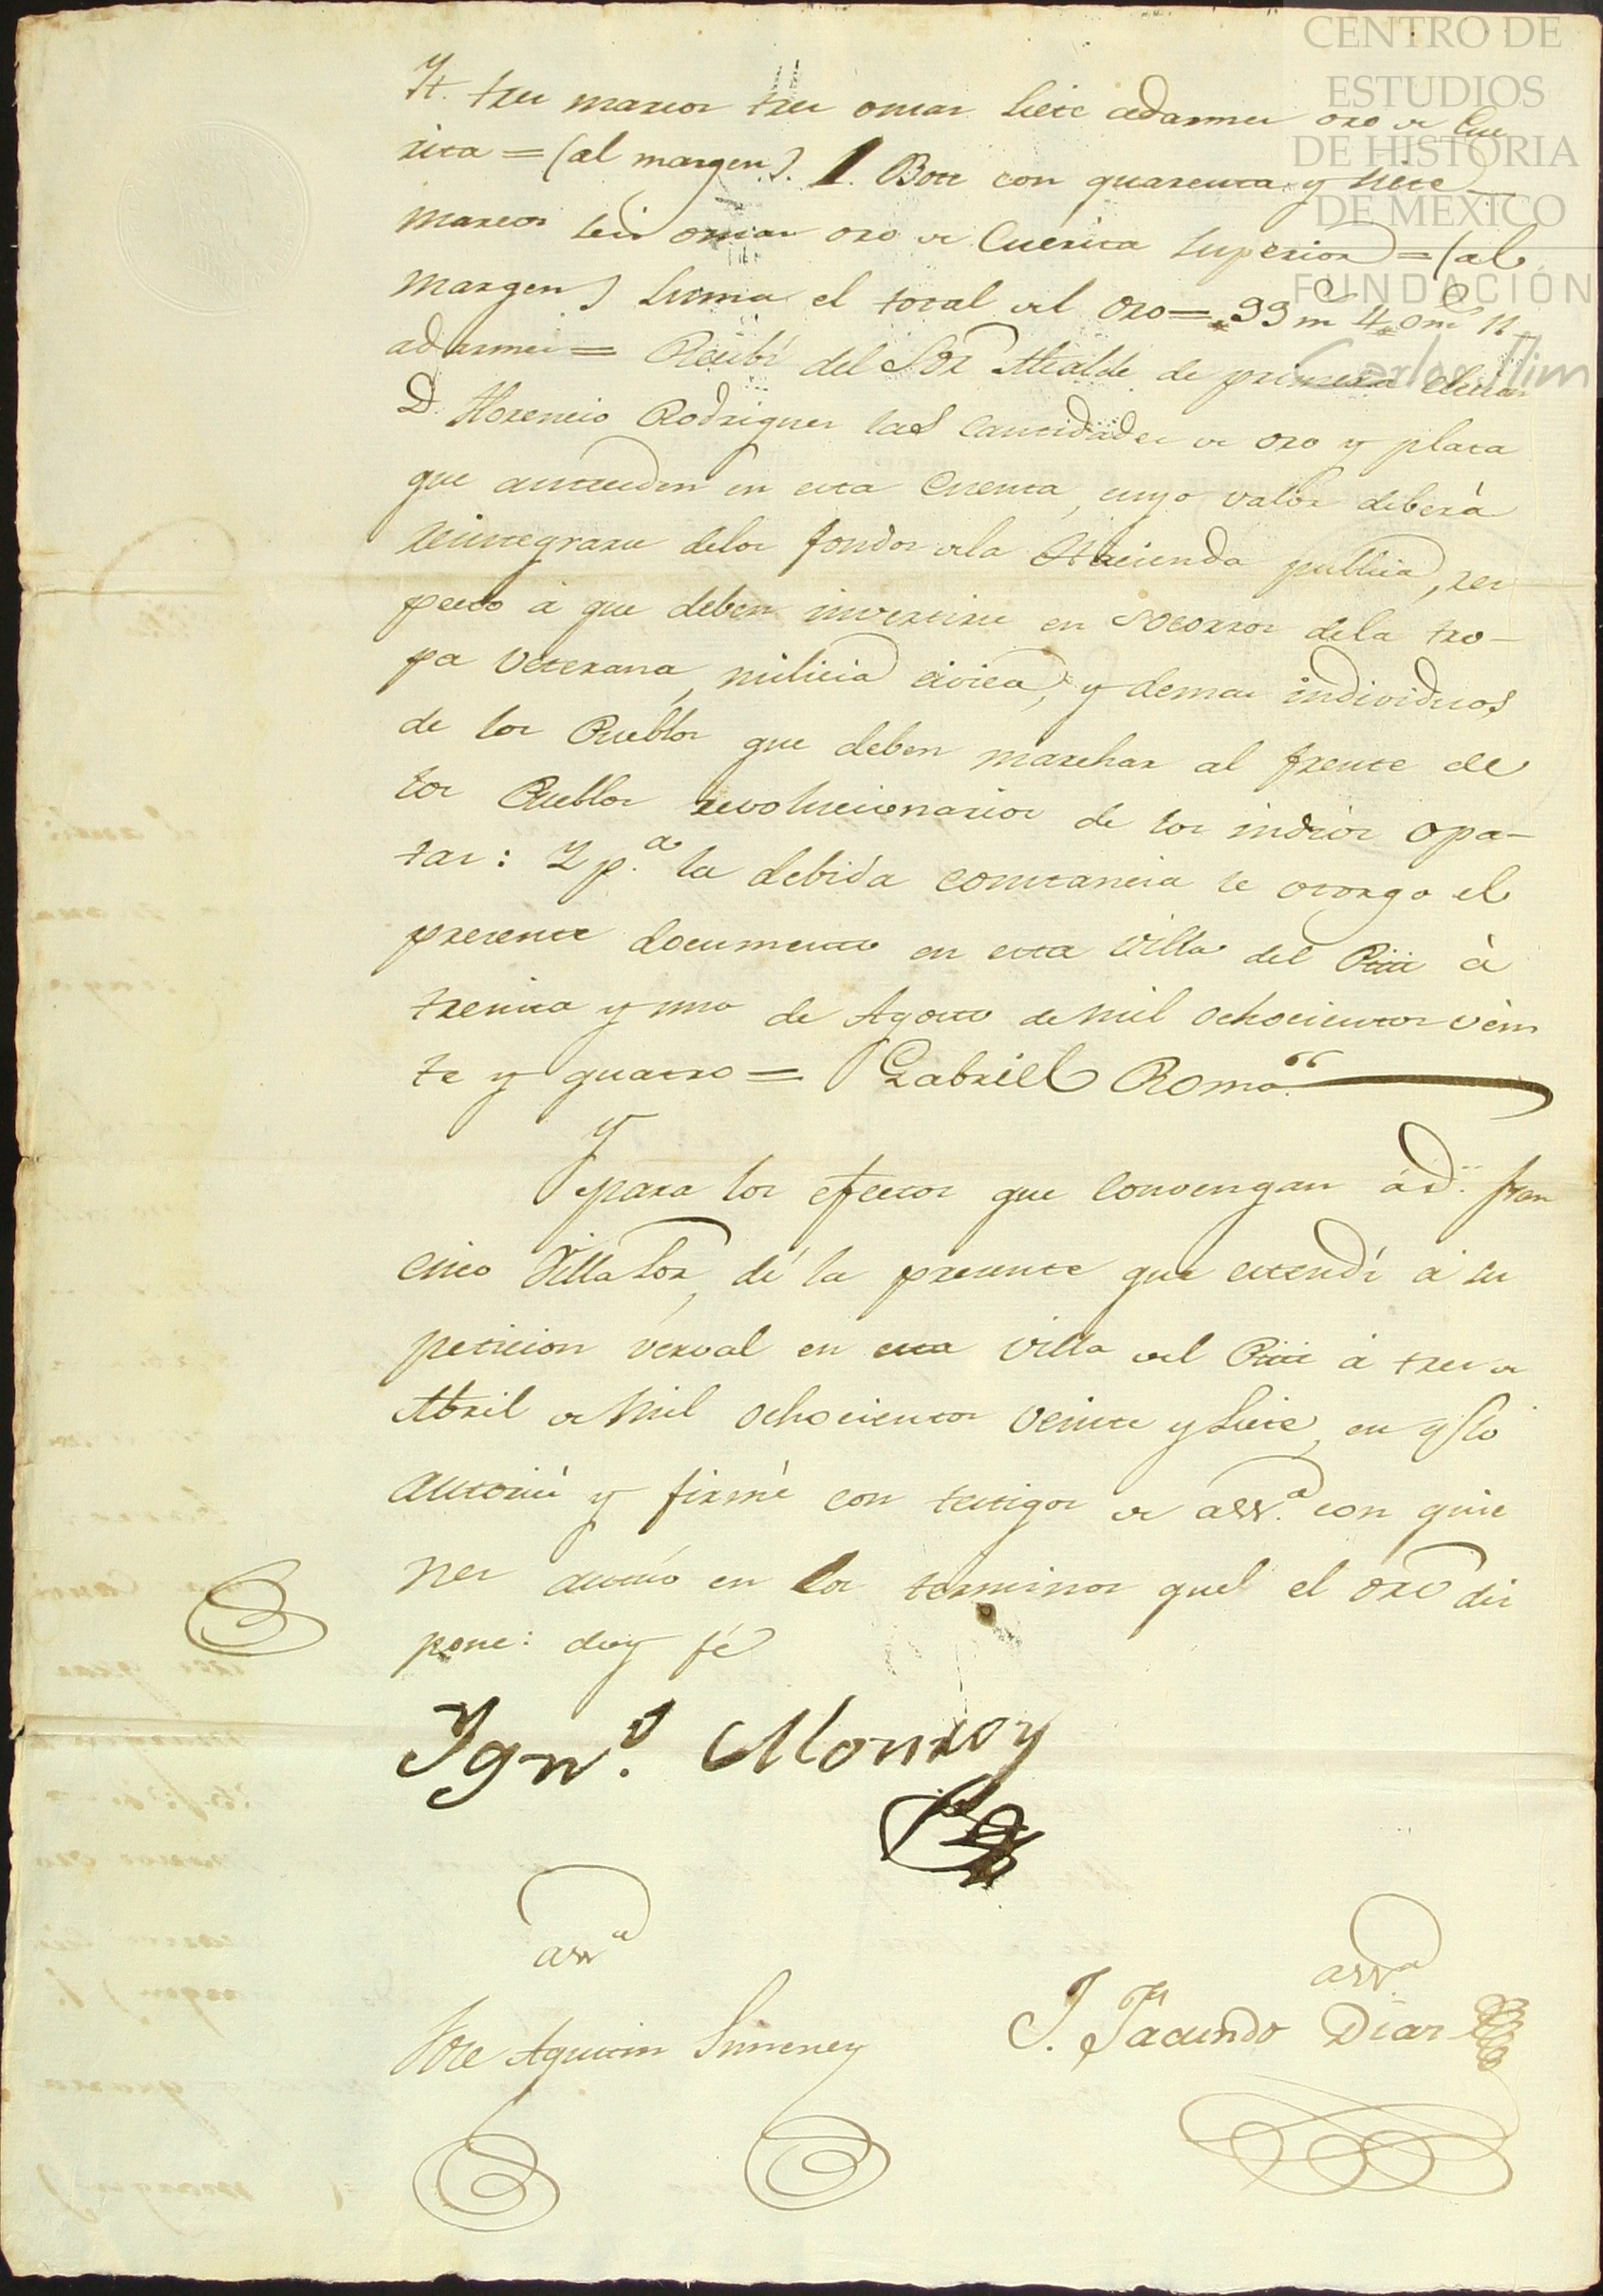 CENTRO DE
ESTUDIOS
DE HISTORIA
DE MEXICO
FUNDACIÓN
Carlos Slim
Yt. tres marcos tres onzas siete adarmes oro de Cue
rica = (al margen). 1. Bote con quarenta y siete
marcos seis onzas oro de Cuerica superior = (al
margen) suma el total del oro = 99 m.s 4 on.s 11
adarmes = Recibí del Sor Alcalde de primera elecion
D. Florencio Rodriguez las cantidades de oro y plata
que anteceden en esta Cuenta, cuyo valor deberà
reintegrarse delos fondos dela Hacienda publica, res
pecto à que deben invertirse en socorros dela tro-
pa veterana, milicia civica, y demas individuos
de los Pueblos que deben marchar al frente de
los Pueblos revolucionarios de los indios opa-
tas: Y p.a la debida constancia le otorgo el
presente documento en esta Villa del Pitic à
treinta y uno de Agosto de mil ochocientos vein
te y quatro = Gabriel Roma
Y
para los efectos que convengan á d. Fran
cisco Villa Sor, dí la presente que estendí à su
peticion verval en esta villa del Pitic à tres de
Abril de mil ochocientos veinte y siete, en q.e lo
autorizé y firmé con testigos de ass.a con quie
nes autúo en los terminos quel el oro dis
pone: doy fé
Ygn.o Monroy
ass.a
ass.a
Jose Agustin Ximenez
J. Facundo Diaz